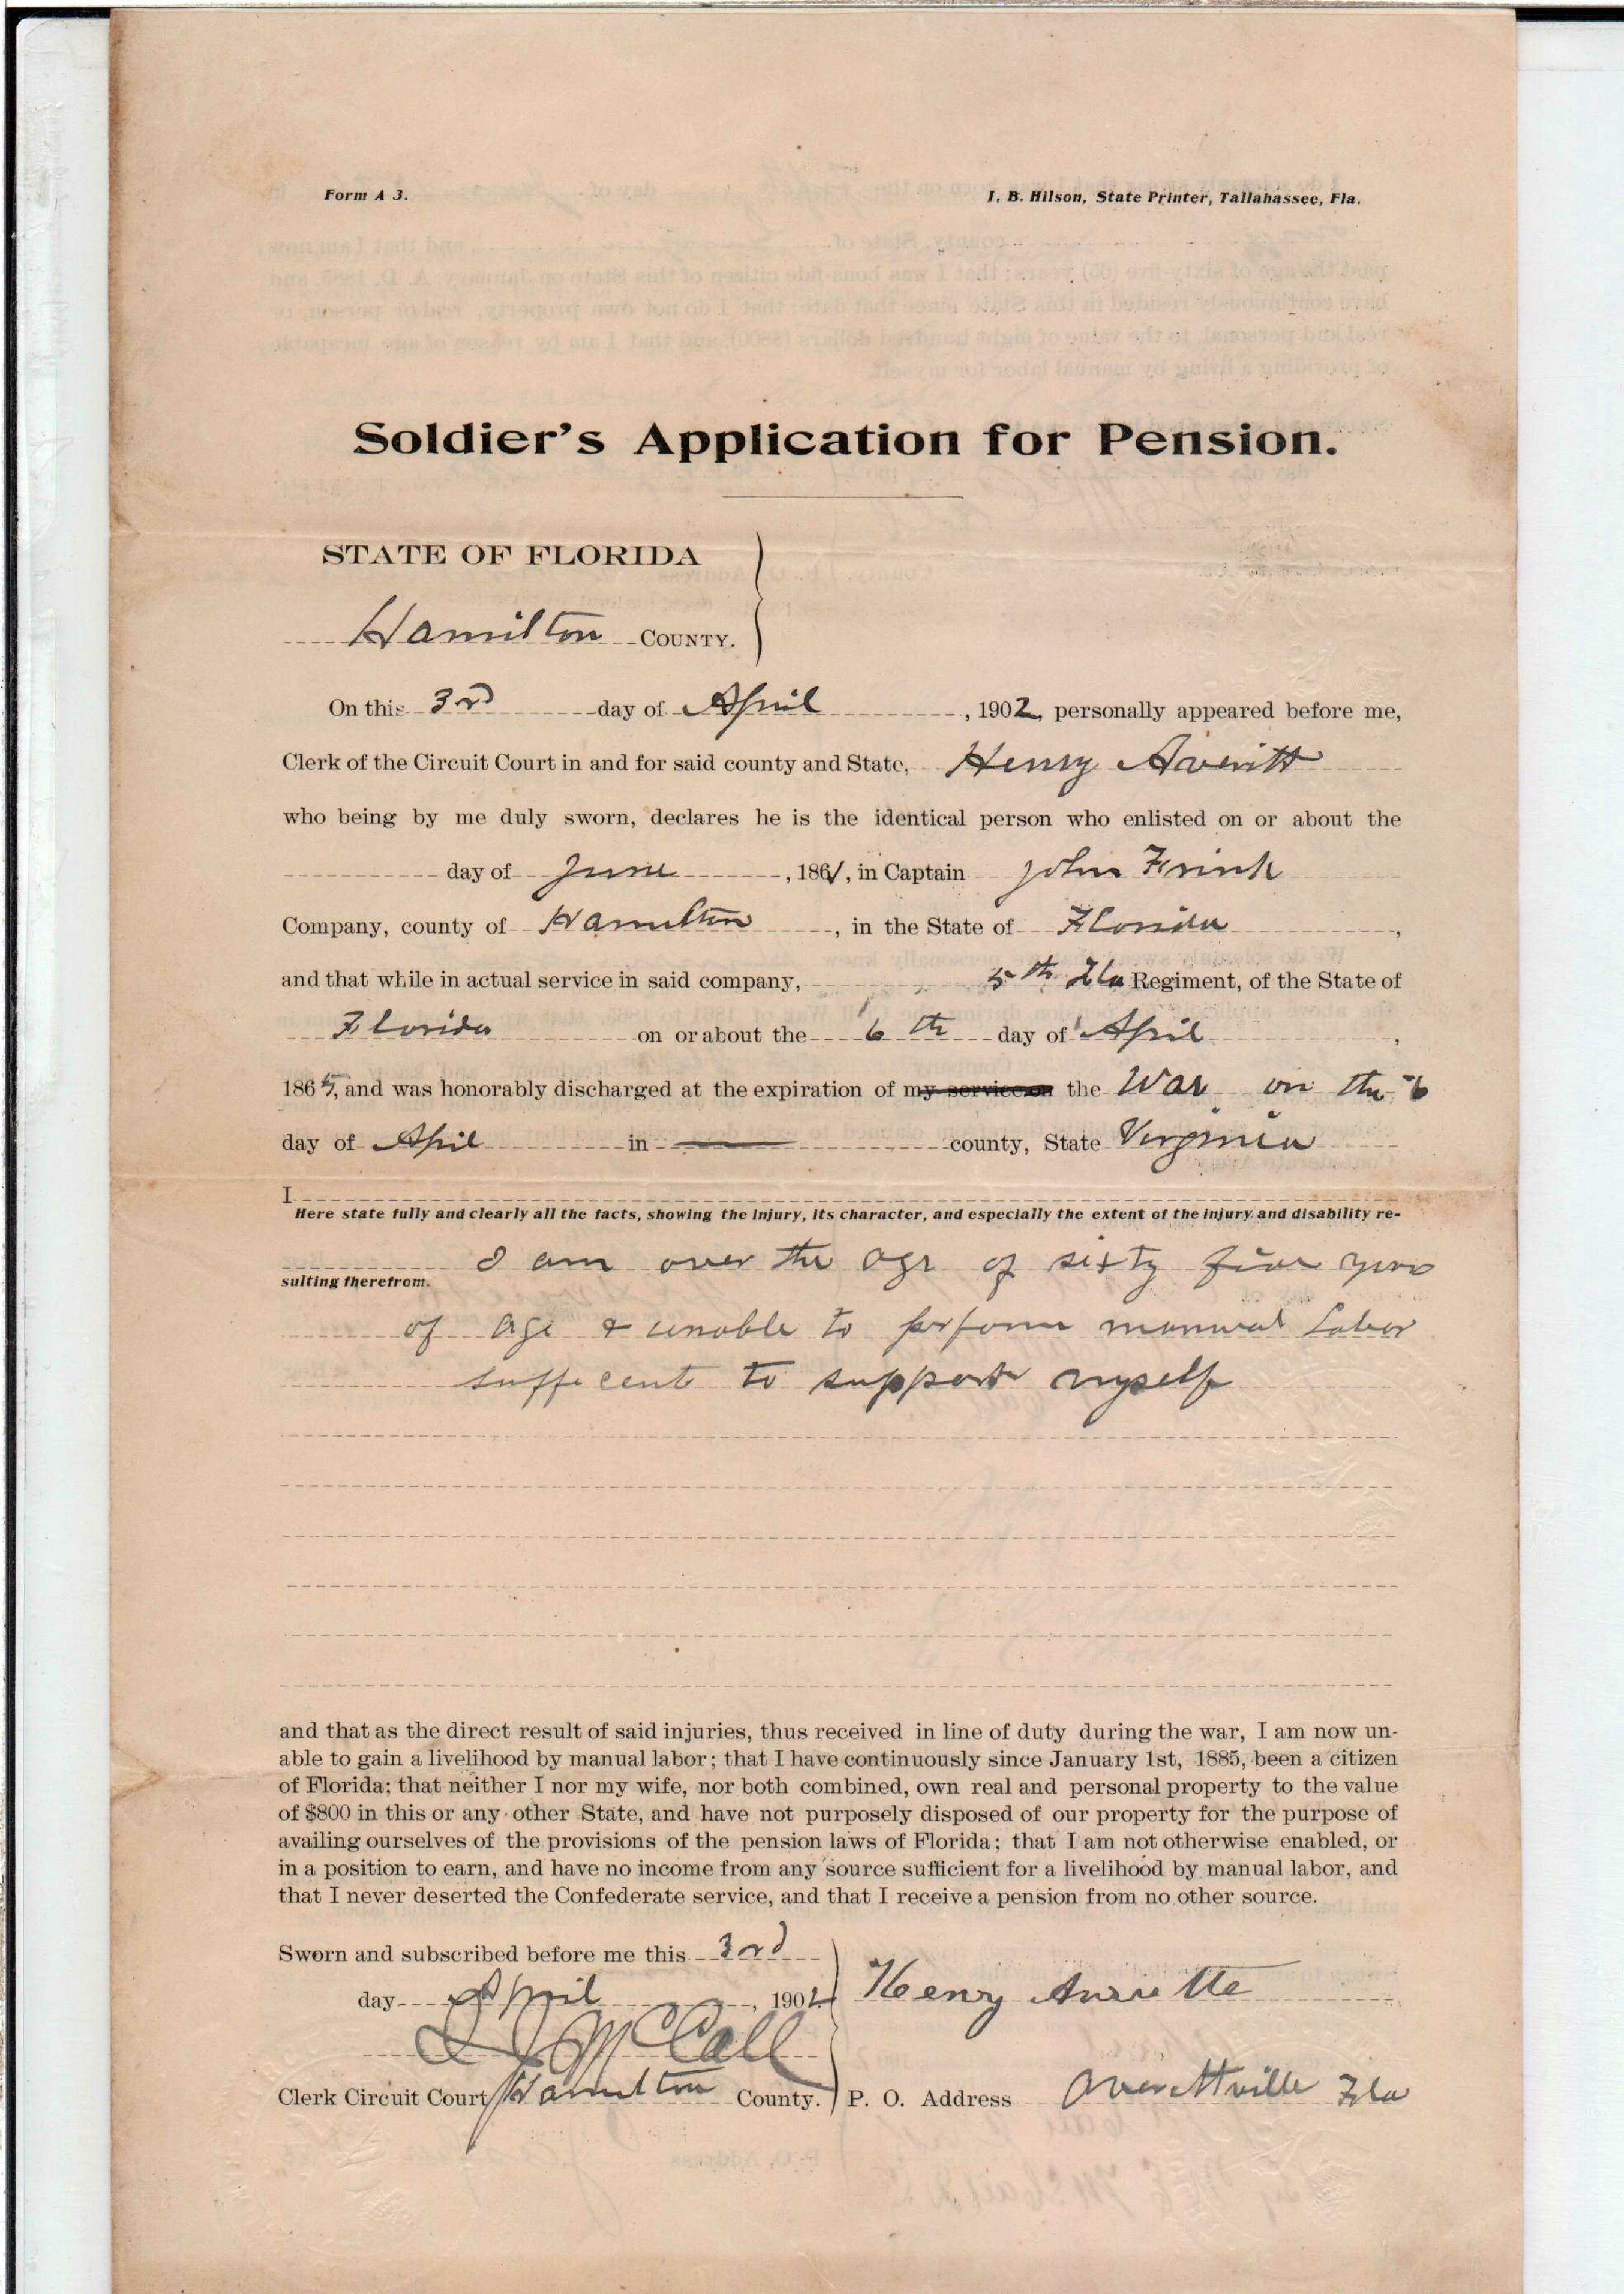 Form A 3.
I. B. Hilson, State Printer, Tallahassee, Fla.
Soldier's Application for Pension.
STATE OF FLORIDA
Hamilton COUNTY.
On this 3rd day of April, 1902, personally appeared before me,
Clerk of the Circuit Court in and for said county and State, Henry Averitt
who being by me duly sworn, declares he is the identical person who enlisted on or about the
day of June, 1861, in Captain John Frink
Company, county of Hamilton, in the State of Florida,
and that while in actual service in said company, 5th Fla Regiment, of the State of
Florida on or about the 6th day of April,
1865, and was honorably discharged at the expiration of my service on the War on the 6
day of April in county, State Virginia
I
Here state fully and clearly all the facts, showing the injury, its character, and especially the extent of the injury and disability re-
sulting therefrom. I am over the age of sixty five years
of age & unable to perform manual Labor
sufficent to support myself
and that as the direct result of said injuries, thus received in line of duty during the war, I am now un-
able to gain a livelihood by manual labor; that I have continuously since January 1st, 1885, been a citizen
of Florida; that neither I nor my wife, nor both combined, own real and personal property to the value
of $800 in this or any other State, and have not purposely disposed of our property for the purpose of
availing ourselves of the provisions of the pension laws of Florida; that I am not otherwise enabled, or
in a position to earn, and have no income from any source sufficient for a livelihood by manual labor, and
that I never deserted the Confederate service, and that I receive a pension from no other source.
Sworn and subscribed before me this 3rd
day April, 1902
Henry
McCall
Clerk Circuit Court Hamilton County.
P. O. Address Averettville Fla